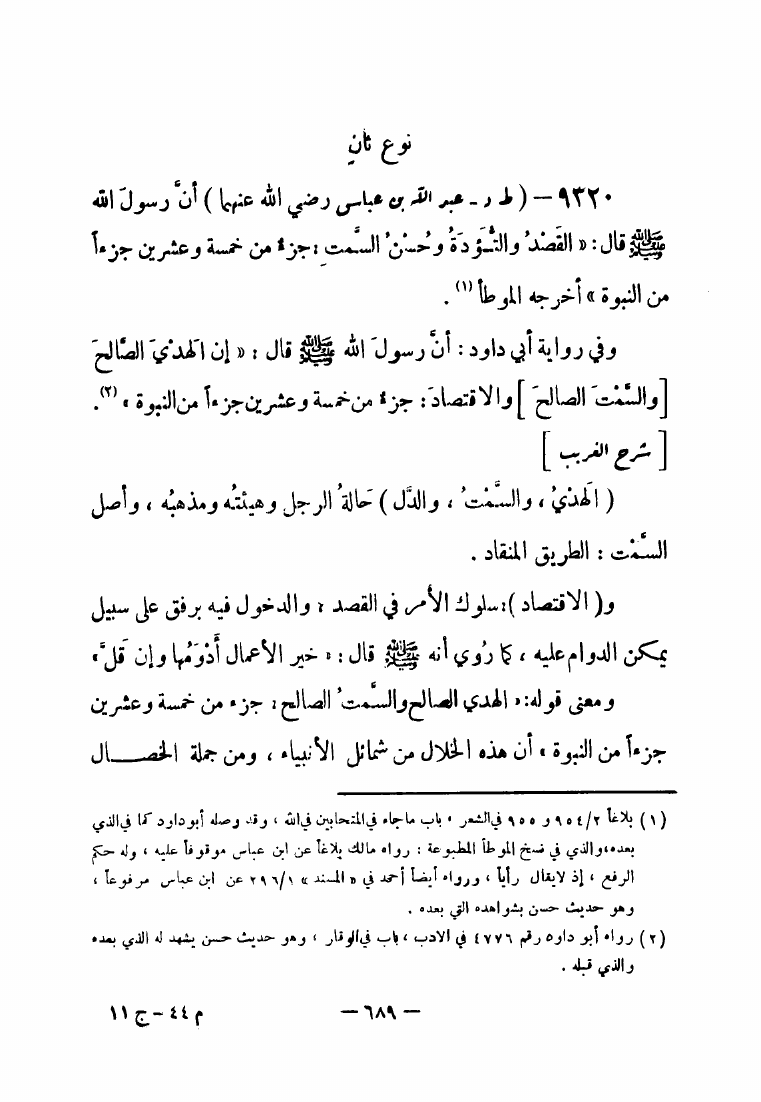 نوع ثانٍ
٩٣٢٠ – ( ط د ـ عبد الله بن عباس رضي الله عنهما ) أنَّ رسولَ الله
ﷺ قال: « القَصْدُ والتُّؤَدَةُ وحُسْنُ السَّمت: جزءٌ من خمسة وعشرين جزءاً
من النبوة » أخرجه الموطأ (١) .
وفي رواية أبي داود : أنَّ رسولَ الله ﷺ قال : « إن الهدْيَ الصَّالحَ
[والسَّمْتَ الصالحَ ] والاقتصادَ: جزءٌ من خمسة وعشرين جزءاً من النبوة » (٢).
[ شرح الغريب ]
( الهدْيُ ، والسَّمْتُ ، والدَّل ) حَالةُ الرجل وهيئتُه ومذهبُه ، وأصل
السَّمْت : الطريق المنقاد .
و( الاقتصاد ): سلوك الأمر في القصد ، والدخول فيه برفق على سبيل
يمكن الدوام عليه ، كما رُوي أنه ﷺ قال : « خير الأعمال أَدْوَمُها وإن قَلَّ »
ومعنى قوله: « الهدي الصالح والسَّمتُ الصالح : جزء من خمسة وعشرين
جزءاً من النبوة » أن هذه الخلال من شمائل الأنبياء ، ومن جملة الخصــال
(١) بلاغاً ٢/ ٩٥٤ و ٩٥٥ في الشعر ، باب ماجاء في المتحابين في الله ، وقد وصله أبو داود كما في الذي
بعده، والذي في نسخ الموطأ المطبوعة : رواه مالك بلاغاً عن ابن عباس موقوفاً عليه ، وله حكم
الرفع ، إذ لايقال رأياً ، ورواه أيضاً أحمد في « المسند » ١/ ٢٩٦ عن ابن عباس مرفوعاً ،
وهو حديث حسن بشواهده التي بعده .
(٢) رواه أبو داود رقم ٤٧٧٦ في الادب ، باب في الوقار ، وهو حديث حسن يشهد له الذي بعده
والذي قبله .
– ٦٨٩ –
م ٤٤ – ج ١١